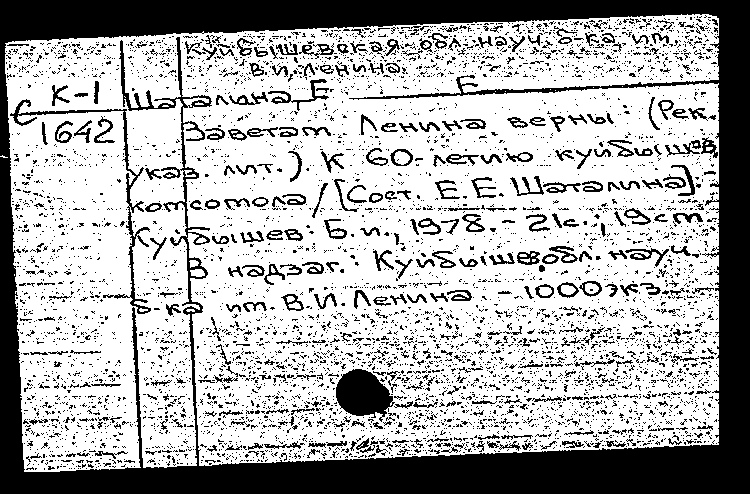 Куйбышевская обл. науч. б-ка им.
В.И. Ленина.
Шаталина, Е. Е.
С К-1
1642
Заветам Ленина верны: (Рек.
указ. лит.). К 60-летию куйбышев.
комсомола / [Сост. Е.Е. Шаталина]. -
Куйбышев: Б.и., 1978. - 21с.; 19см.
В надзаг.: Куйбышев. обл. науч.
б-ка им. В.И. Ленина. - 1000 экз.